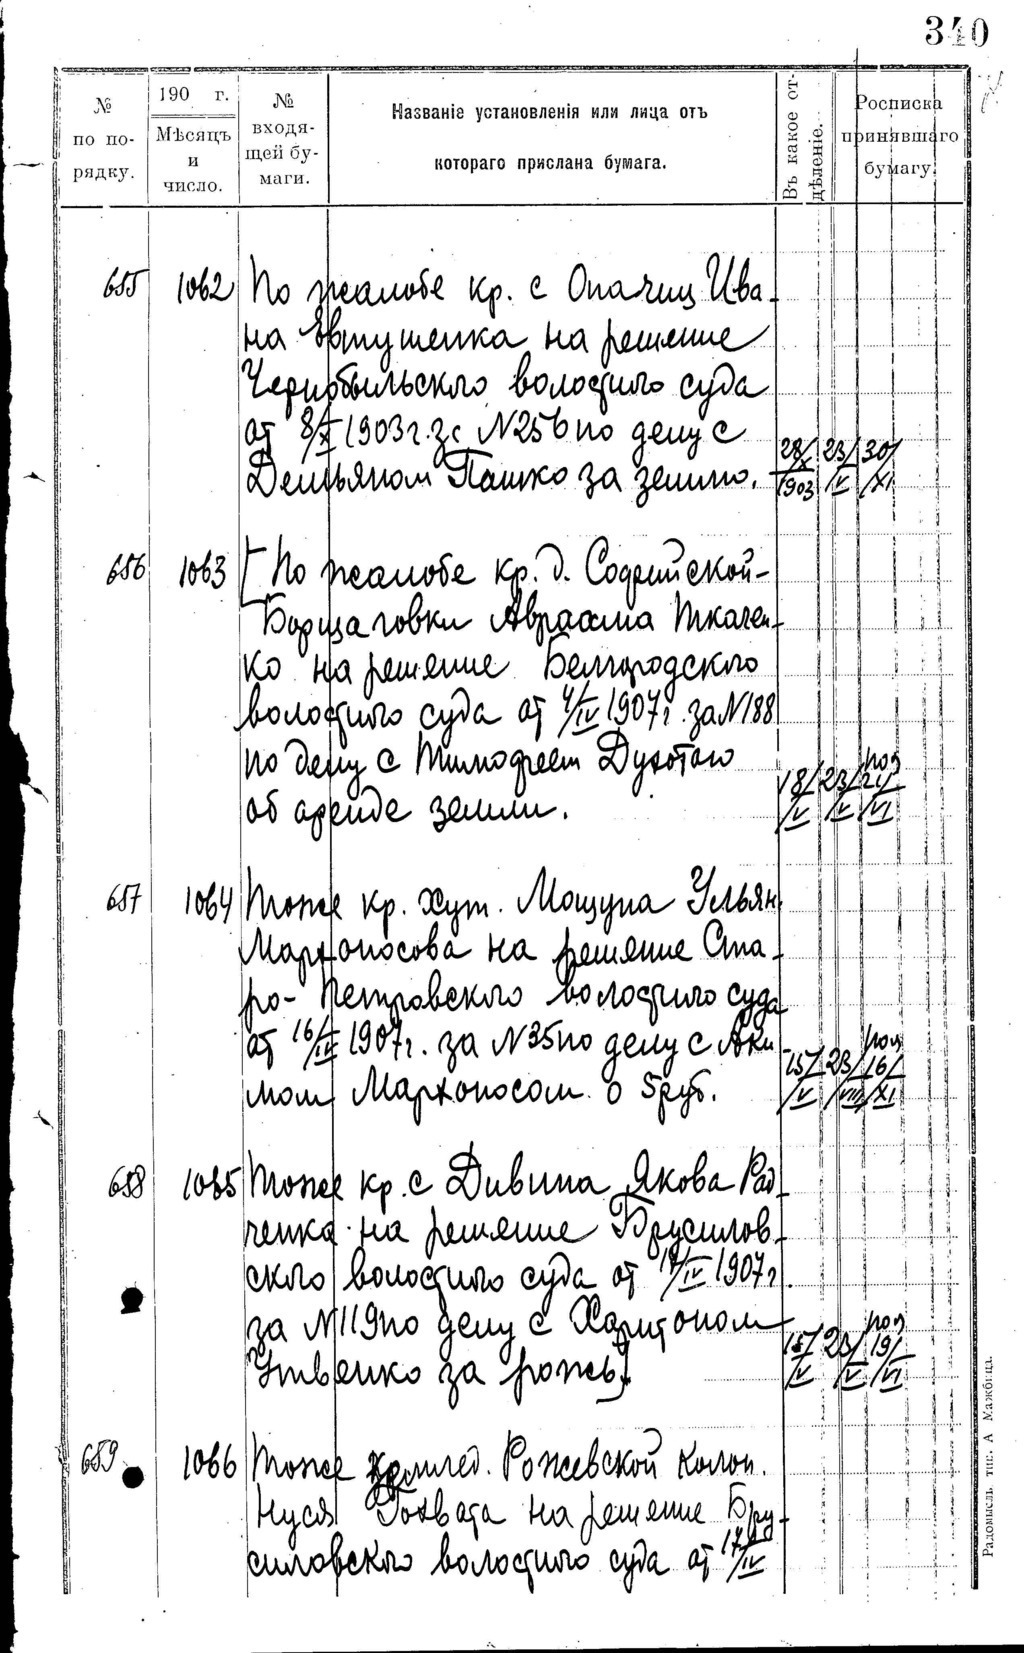 340
№ по порядку.
190 г.
Мѣсяцъ и число.
№ входящей бумаги.
Названіе установленія или лица отъ
котораго прислана бумага.
Въ какое отдѣленіе.
Росписка принявшаго бумагу.
655 1062 По жалобе кр. с Опачиц Ива-
на Евтушенка на решение
Чернобыльского волостного суда
от 8/X 1903 г. за N256 по делу с
Демьяном Пашко за землю. 28/X 1903 23/V 30/XI
656 1063 [По жалобе кр. д. Софийской-
Борщаговки Авраама Ткачен-
ко на решение Белгородского
волостного суда от 4/IV 1907 г. за N188
по делу с Тимофеем
об аренде земли. 18/V 23/V 21/VI
657 1064 Тоже кр. хут. Мощуна Ульян
Мархоносова на решение Ста-
ро-Петровского волостного суда
от 16/IV 1907 г. за N35 по делу с Аки
мом Мархоносом о 5 руб. 15/V 23/VIII 16/XI
658 1065 Тоже кр. с Дивина Якова Рад-
ченка на решение Брусилов-
ского волостного суда от 17/IV 1907 г.
за N119 по делу с Харитоном
за рожь]. 15/V 23/V 19/VI
659 1066 Тоже Рожевской колон.
Нуся на решение Бру-
силовского волостного суда от 17/IV
Радомысль тип. А Мажбица.